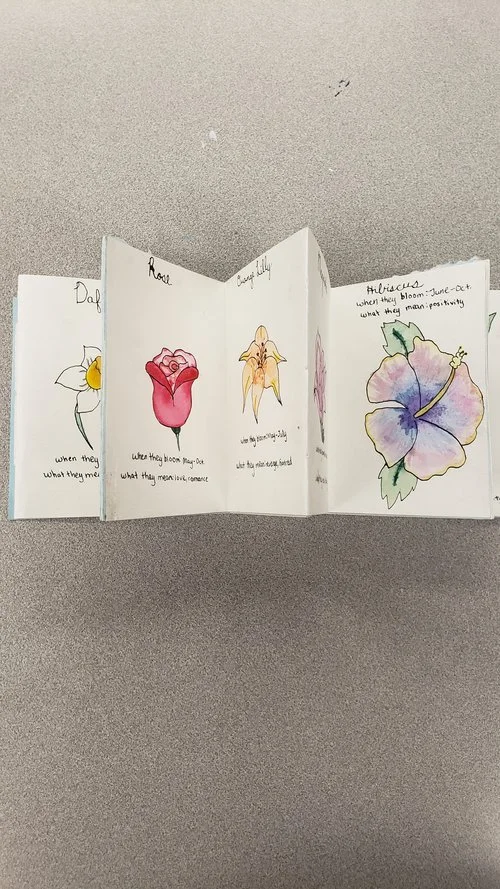 Daf
when they
what they me
Rose
when they bloom: May-Oct
what they mean: love, romance
Orange Lilly
when they bloom: May-July
what they mean:
Hibiscus
when they bloom: June-Oct.
what they mean: positivity